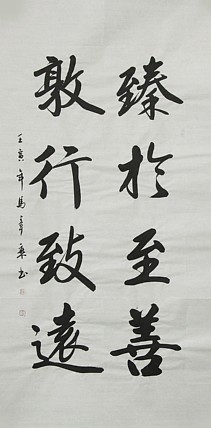 臻於至善
敦行致远
壬寅年马章乘书